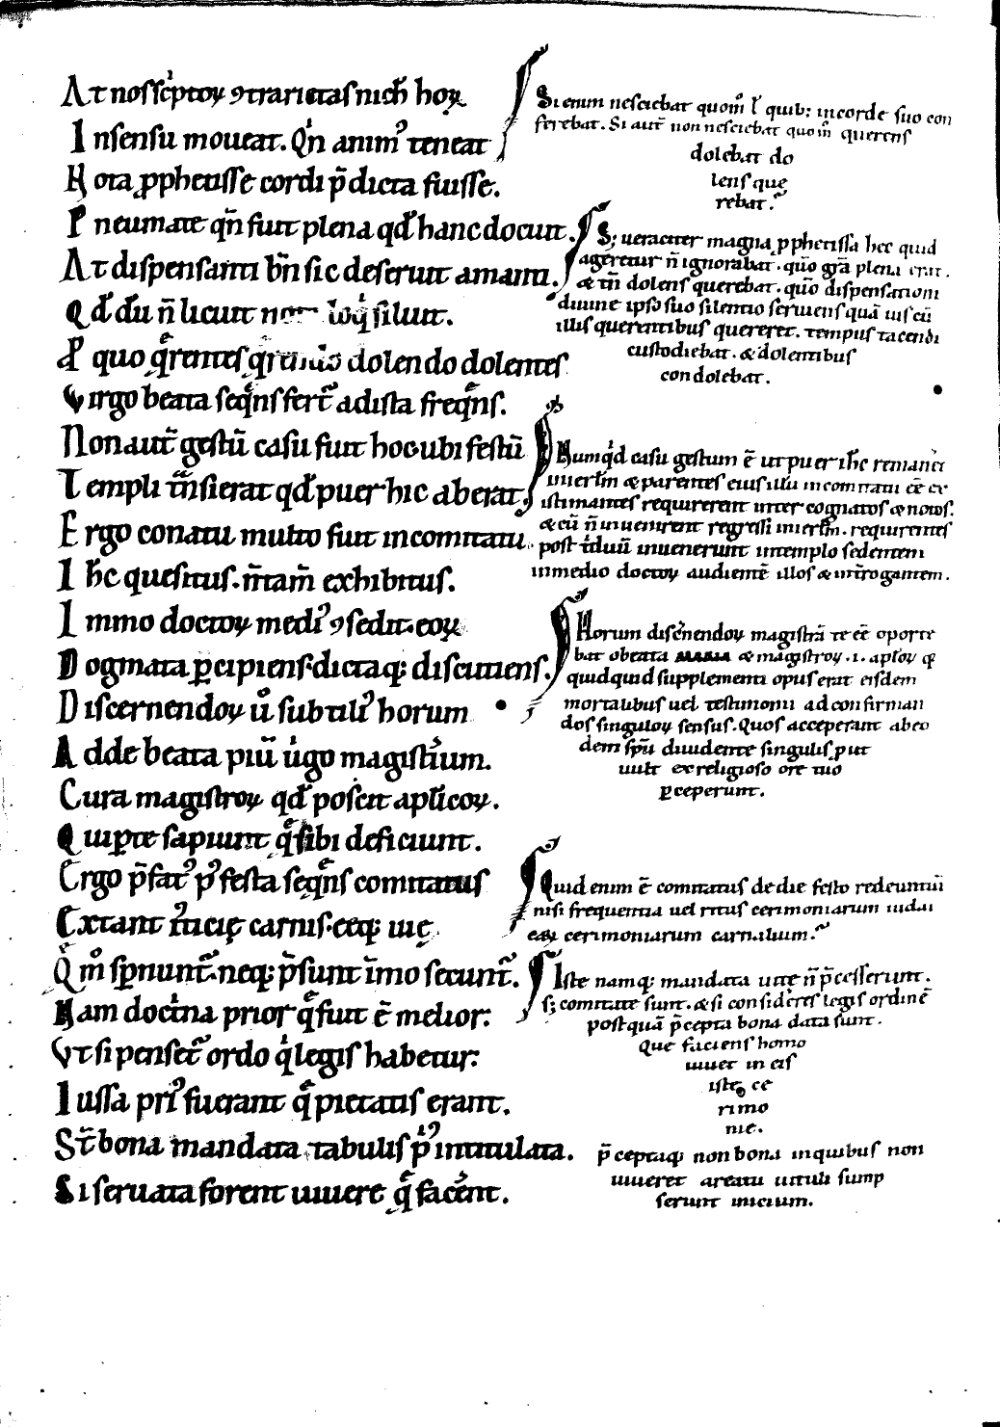 At nos sc̄ptoꝝ ꝯtrarietas nich̄ hoꝝ
In sensu moueat. Qn̄ animꝰ teneat
Nota ꝓphetisse cordi p̄dicta fuisse.
Pneumate qn̄ fuit plena qd̄ hanc docuit.
At dispensanti bn̄ sic deseruit amanti.
Qd̄ dū n̄ licuit loqi siluit.
Et quo q̄rentes dolendo dolentes
Virgo beata seq̄ns fert̄ adista freq̄ns.
Non aut̄ gestū casu fuit hoc ubi festū
Templi t̄nsierat qd̄ puer hic aberat.
Ergo conatu multo fuit incomitatu
Ih̄c quesitus. m̄tam̄ exhibitus.
Immo doctoꝝ mediꝰ ꝯsedit. eoꝝ
Dogmata ꝑcipiens. dictaqꝫ discutiens.
Discernendoꝝ ū subtiliꝰ horum
Adde beata piū uigo magistium.
Cura magistroꝝ qd̄ poscit apl̄icoꝝ.
Qui ꝑte sapiunt q̄ sibi deficiunt.
Ergo p̄fatꝰ pꝰ festa seq̄ns comitatus
Extant carnis. eeqꝫ uię
Qm̄ sp̄nunt̄. neqꝫ p̄sunt īmo secunt̄.
Nam doct̄na prior q̄ fuit ē melior:
Vt si penset̄ ordo q̄ legis habetur:
Iussa priꝰ fuerant q̄ pietatis erant.
St̄ bona mandata tabulis pꝰ intitulata.
Si seruata forent uiuere q̄ facēnt.
Si enim nesciebat quom̄ l̄ quibꝫ incorde suo con
ferebat. Si aut̄ non nesciebat quom̄ querens
dolebat do
lens que
rebat.
Sꝫ ueraciter magna ꝓphetissa hec quid
ageretur n̄ ignorabat. quo gr̄a plena erat.
& tn̄ dolens querebat. quo dispensationi
diuine ipso suo silentio seruiens quā uis cū
illis querentibus quereret. tempus tacendi
custodiebat. & dolentibus
condolebat.
Numqid casu gestum ē ut puer ih̄c remanēt
inierl̄m & parentes eius illū incomitatu eē ex
istimantes requirerent inter cognatos & notos.
& cū n̄ inuenirent regressi inierl̄m. requirentes
post tiduū inuenerunt intemplo sedentem
inmedio doctoꝝ audientē illos & int̄rogantem.
Horum discn̄endoꝝ magistrā te eē oporte
bat obeata MARIA & magistroꝝ .i. apl̄oꝝ qͥ
quidquid supplementi opus erat eisdem
mortalibus uel testimonii ad confirman
dos singuloꝝ sensus. Quos acceperant abeo
dem sp̄u diuidente singulis ꝓut
uult ex religioso ore tuo
ꝑceperunt.
Quid enim ē comitatus de die festo redeuntiū
nisi frequentia uel ritus cerimoniarum iudai
caꝝ cerimoniarum carnalium.
Iste namqꝫ mandata uite n̄ p̄cesserunt.
sꝫ comitate sunt. & si consideres legis ordinē
postquā p̄cepta bona data sunt.
Que faciens homo
uiuet in eis
iste ce
rimo
nie.
p̄ceptaqꝫ non bona inquibus non
uiueret areatu uituli sump
serunt inicium.